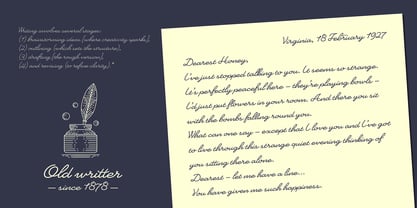 Writing involves several stages:
(1) brainstorming ideas (where creativity sparks),
(2) outlining (which sets the structure),
(3) drafting (the rough version),
(4) and revising (to refine clarity).*
Old writter
– since 1878 –
Virginia, 18 February 1927
Dearest Honey,
I've just stopped talking to you. It seems so strange.
It's perfectly peaceful here – they're playing bowls –
I'd just put flowers in your room. And there you sit
with the bombs falling round you.
What can one say – except that I love you and I've got
to live through this strange quiet evening thinking of
you sitting there alone.
Dearest – let me have a line...
You have given me such happiness.